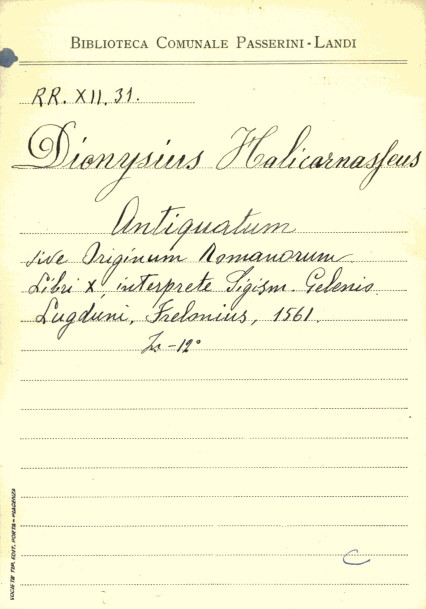 BIBLIOTECA COMUNALE PASSERINI - LANDI
RR. XII. 31.
Dionysius Halicarnasseus
Antiquatum
sive Originum Romanorum
Libri X, interprete Sigism. Gelenio
Lugduni, Frelonius, 1561.
In-12°
C